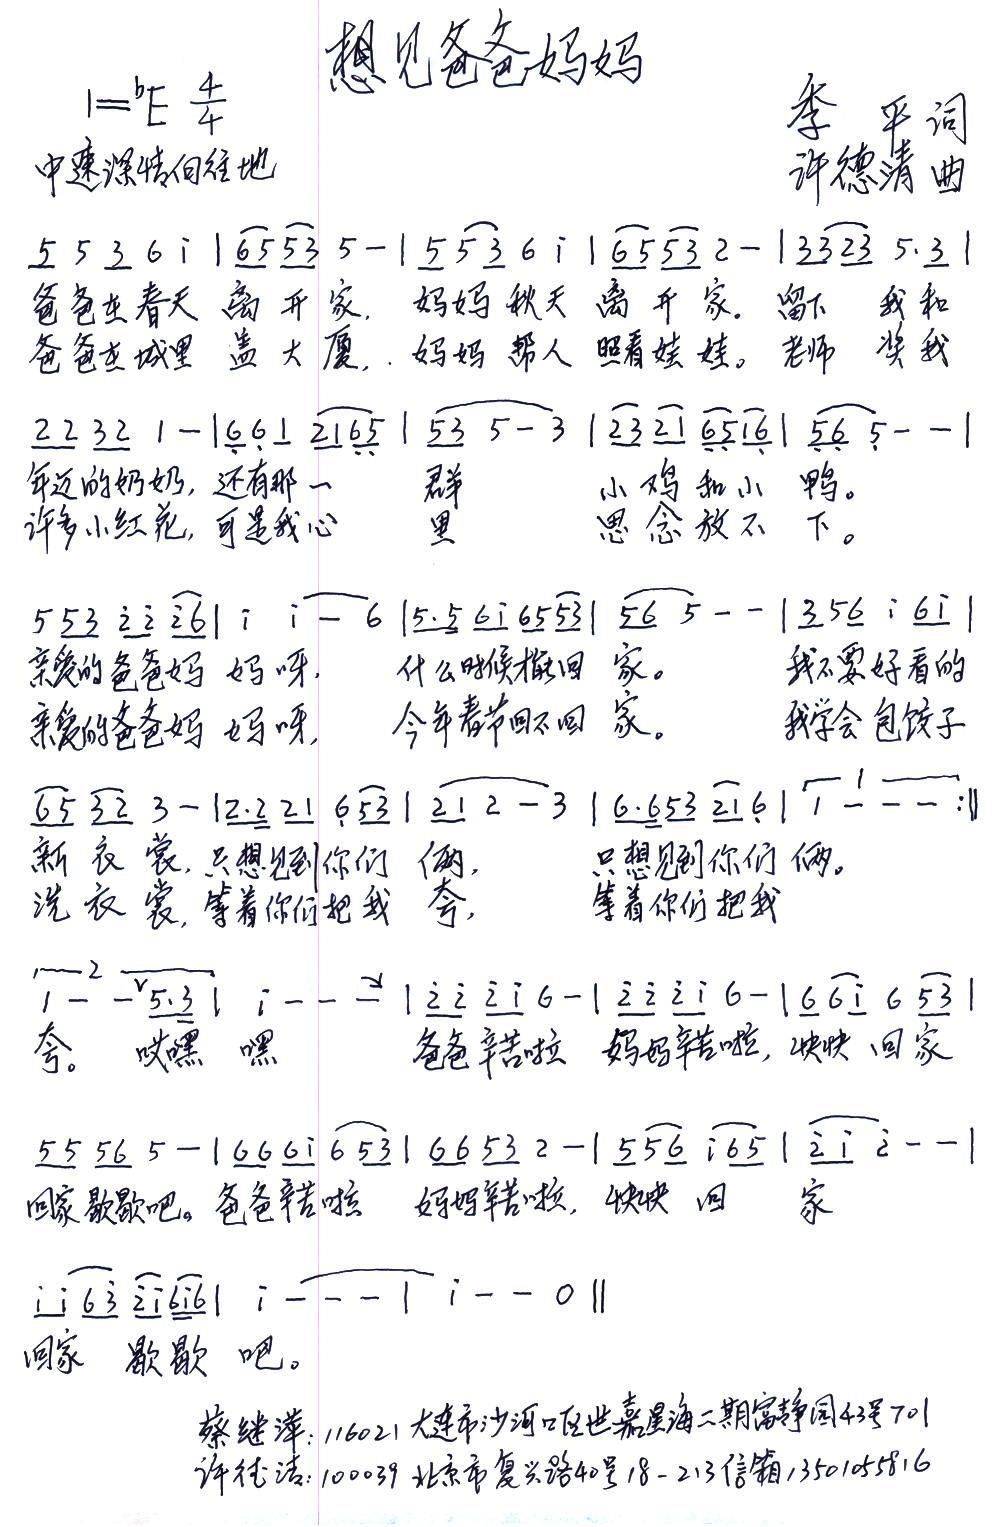 想见爸爸妈妈
1=♭E 4/4
中速深情向往地
李 平 词
许德清 曲
5 5 3 6 i | 6 5 5 3 5 - | 5 5 3 6 i | 6 5 5 3 2 - | 3 3 2 3 5 · 3 |
爸爸在春天 离 开 家, 妈妈 秋天 离 开 家。 留下 我 和
爸爸在城里 盖 大 厦, 妈妈 帮人 照看娃 娃。 老师 奖 我
2 2 3 2 1 - | 6 6 1 2 1 6 5 | 5 3 5 - 3 | 2 3 2 1 6 5 1 6 | 5 6 5 - - |
年迈的奶奶, 还有那一 群 小 鸡 和 小 鸭。
许多小红花, 可是我心 里 思 念 放 不 下。
5 5 3 i i i 6 | i i - 6 | 5 · 5 6 i 6 5 5 3 | 5 6 5 - - | 3 5 6 i 6 i |
亲爱的爸爸妈 妈呀, 什么时候才能回 家。 我不要好看的
亲爱的爸爸妈 妈呀, 今年春节回不回 家。 我学会 包饺子
6 5 3 2 3 - | 2 · 2 2 1 6 5 3 | 2 1 2 - 3 | 6 · 6 5 3 2 1 6 | 1 - - - :||
新 衣 裳, 只想见到你们 俩, 只想见到你们 俩。
洗 衣 裳, 等着你们把我 夸, 等着你们把我
1
2
1 - - 5 · 3 | i - - - | i i i i 6 - | i i i i 6 - | 6 6 i 6 5 3 |
夸。 哎嘿 嘿 爸爸辛苦啦 妈妈辛苦啦, 快快 回 家
5 5 5 6 5 - | 6 6 6 i 6 5 3 | 6 6 5 3 2 - | 5 5 6 i 6 5 | 2 i 2 - - |
回家歇歇吧。 爸爸辛苦啦 妈妈辛苦啦, 快快 回 家
i i 6 3 2 i 6 i 6 | i - - - | i - - 0 ||
回家 歇歇 吧。
蔡继萍: 116021 大连市沙河口区世嘉星海二期富静园43号701
许德清: 100039 北京市复兴路40号18-213信箱13501055816